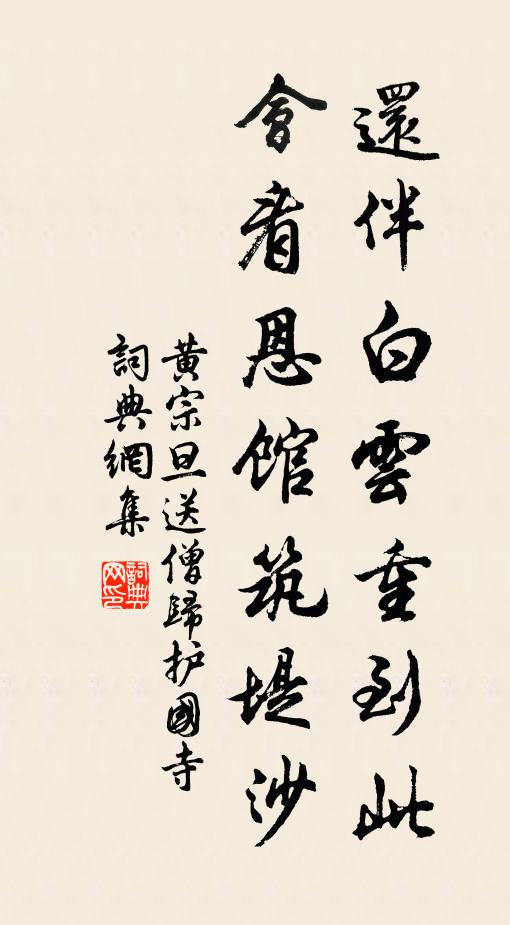 還伴白雲重到此
會看恩館筑堤沙
黃宗旦送僧歸护國寺
詞典網集
詞典网印